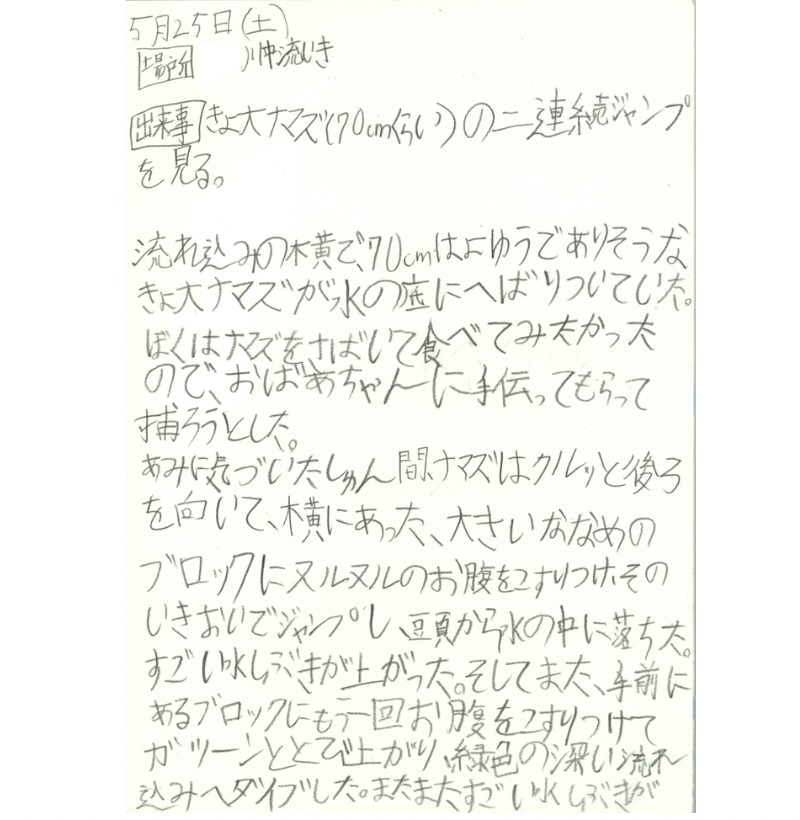 5月25日(土)
場所 川中流いき
出来事 きょ大ナマズ(70cmくらい)の二連続ジャンプ
を見る。
流れ込みの横で、70cmはよゆうでありそうな
きょ大ナマズが水の底にへばりついていた。
ぼくはナマズをさばいて食べてみたかった
ので、おばあちゃんに手伝ってもらって
捕ろうとした。
あみに気づいたしゅん間、ナマズはクルッと後ろ
を向いて、横にあった、大きいななめの
ブロックにヌルヌルのお腹をこすりつけ、その
いきおいでジャンプし、頭から水の中に落ちた。
すごい水しぶきが上がった。そしてまた、手前に
あるブロックにもう一回お腹をこすりつけて
ガツーンととび上がり、緑色の深い流れ
込みへダイブした。またまたすごい水しぶきが